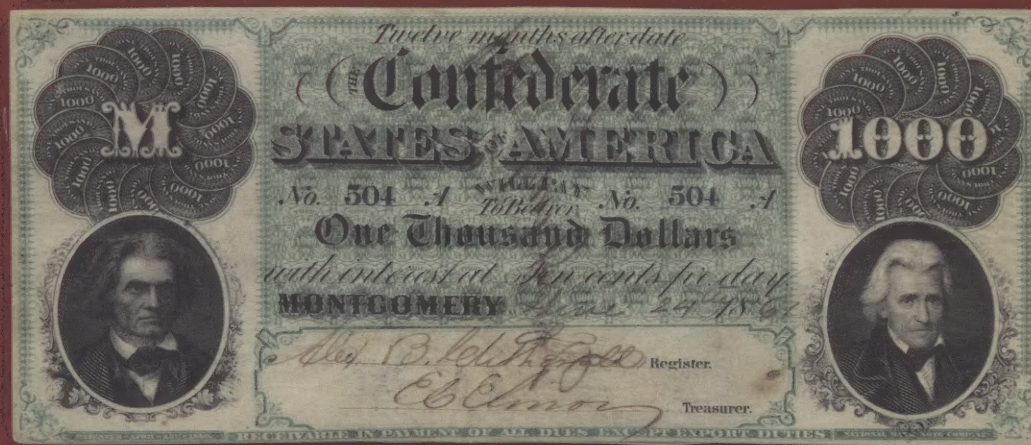 Twelve months after date
THE Confederate
STATES OF AMERICA
M
1000
No. 504 A WILL PAY To Bearer No. 504 A
One Thousand Dollars
with interest at Ten cents per day
MONTGOMERY June 24 186
Alex B. Clitherall Register.
E C Elmore Treasurer.
RECEIVABLE IN PAYMENT OF ALL DUES EXCEPT EXPORT DUTIES
NATIONAL BANK NOTE COMPANY